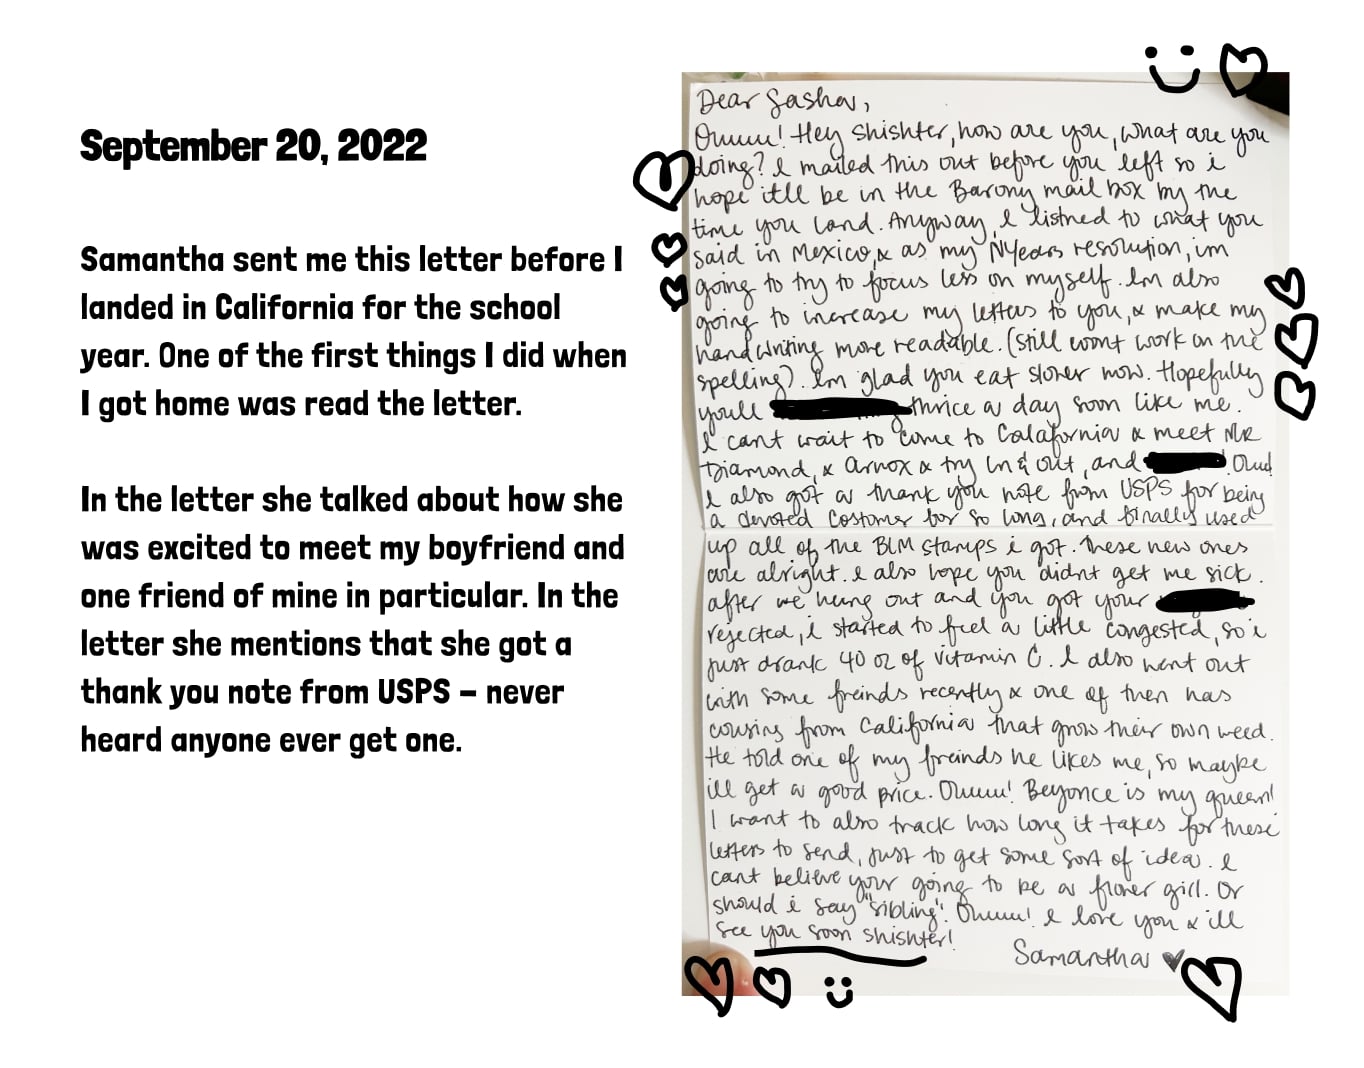 September 20, 2022
Samantha sent me this letter before I
landed in California for the school
year. One of the first things I did when
I got home was read the letter.
In the letter she talked about how she
was excited to meet my boyfriend and
one friend of mine in particular. In the
letter she mentions that she got a
thank you note from USPS – never
heard anyone ever get one.
Dear Sasha,
Ouuuu! Hey shishter, how are you, what are you
doing? I mailed this out before you left so i
hope itll be in the Barony mail box by the
time you land. Anyway, I listned to what you
said in Mexico, & as my NYears resolution, im
going to try to focus less on myself. Im also
going to increase my letters to you, & make my
handwriting more readable. (still wont work on the
spelling). Im glad you eat slower now. Hopefully
youll thrice a day soon like me.
I cant wait to come to Calafornia & meet MR
Diamond, & Arnox & try In & out, and ! Ouu!
I also got a thank you note from USPS for being
a devoted costomer for so long, and finally used
up all of the BLM stamps i got. These new ones
are alright. I also hope you didnt get me sick.
after we hung out and you got your
rejected, i started to feel a little congested, so i
just drank 40 oz of vitamin C. I also went out
with some freinds recently & one of them has
cousins from California that grow their own weed.
He told one of my freinds he likes me, so maybe
ill get a good price. Ouuuu! Beyonce is my queen!
I want to also track how long it takes for these
letters to send, just to get some sort of idea. I
cant believe your going to be a flower girl. Or
should i say "sibling". Ouuuu! I love you & ill
see you soon shishter!
Samantha